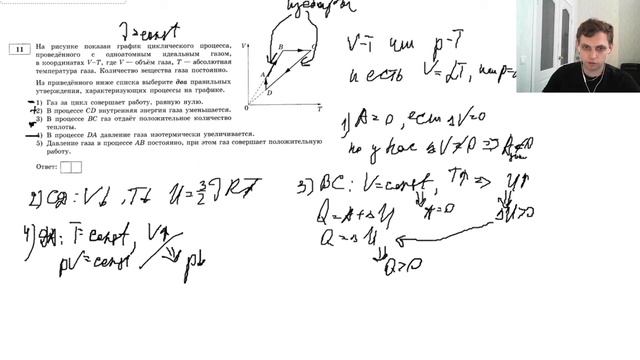 J=const
изобары
11
На рисунке показан график циклического процесса,
проведённого с одноатомным идеальным газом,
в координатах V–T, где V — объём газа, T — абсолютная
температура газа. Количество вещества газа постоянно.
Из приведённого ниже списка выберите два правильных
утверждения, характеризующих процессы на графике.
1) Газ за цикл совершает работу, равную нулю.
2) В процессе CD внутренняя энергия газа уменьшается.
3) В процессе BC газ отдаёт положительное количество
теплоты.
4) В процессе DA давление газа изотермически увеличивается.
5) Давление газа в процессе AB постоянно, при этом газ совершает положительную
работу.
Ответ:
V
B
C
A
D
0
T
V-T или p-T
и есть V=αT, или p=
1) A=0, если ΔV=0
но у нас ΔV≠0 => A≠0
2) CD: V↓, T↓ U=3/2 JRT
3) BC: V=const, T↑ => U↑
Q=A+ΔU A=0 ΔU>0
Q=ΔU
Q>0
4) DA: T=const, V↑
pV=const p↓